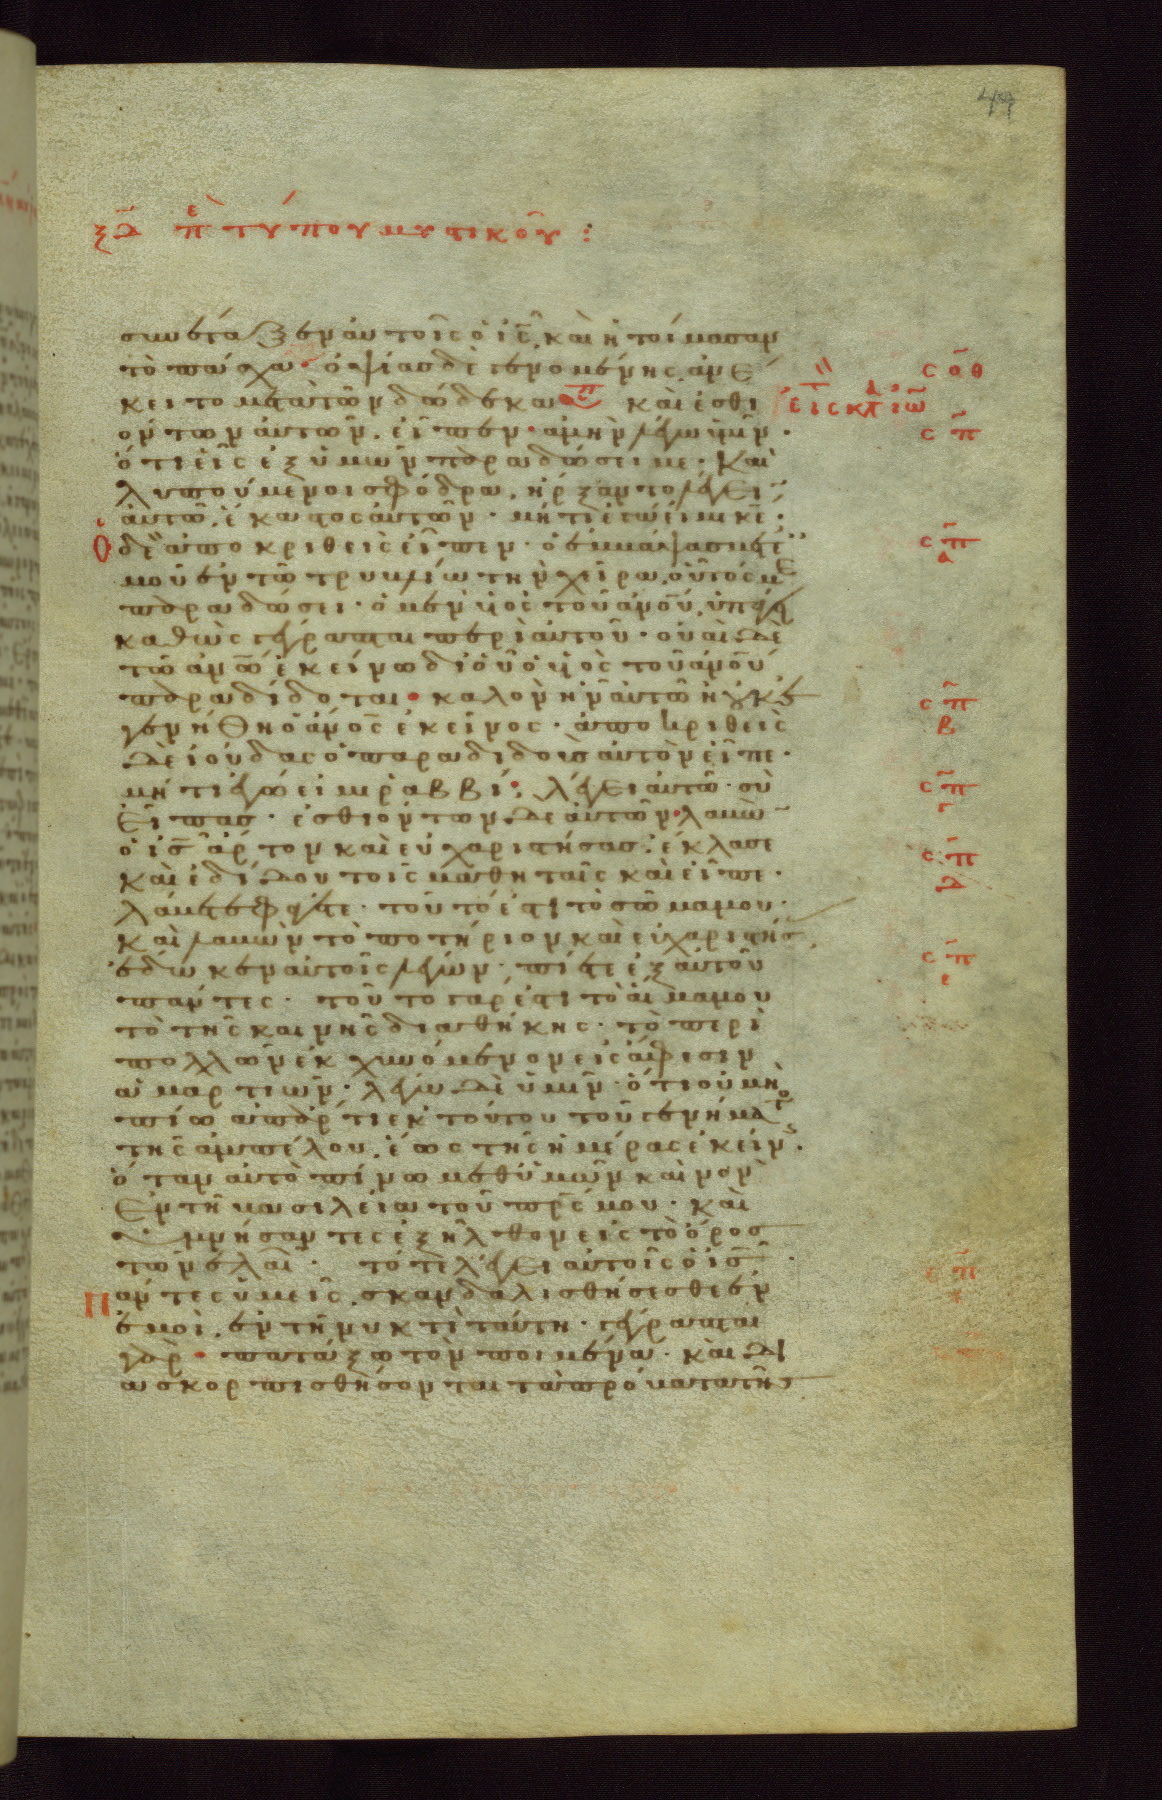 49
ξδ πε τύπου μυστικοῦ :
συνέταξεν αὐτοῖς ὁ ις̅, καὶ ἡτοίμασαν
τὸ πάσχα· ὀψίας δὲ γενομένης, ἀνέ
κειτο μετὰ τῶν δώδεκα καὶ ἐσθι
όντων αὐτῶν, εἶπεν· ἀμὴν λέγω ὑμῖν·
ὅτι εἷς ἐξ ὑμῶν παραδώσει με· καὶ
λυπούμενοι σφόδρα, ἤρξαντο λέγειν
αὐτῶ, ἕκαστος αὐτῶν· μήτι ἐγώ εἰμι κε̅·
Ὁ δὲ ἀποκριθεὶς εἶπεν· ὁ ἐμβάψας μετ
ἐμοῦ ἐν τῶ τρυβλίω τὴν χεῖρα, οὗτός με
παραδώσει· ὁ μὲν υἱὸς τοῦ ανου̅, ὑπάγει
καθὼς γέγραπται περὶ αὐτοῦ· οὐαὶ δὲ
τῶ ανω̅ ἐκείνω δι οὗ ὁ υἱὸς τοῦ ανου̅
παραδίδοται· καλὸν ἦν αὐτῶ εἰ οὐκ ἐ
γεννήθη ὁ ανος̅ ἐκεῖνος· ἀποκριθεὶς
δὲ ἰούδας ὁ παραδιδοὺς αὐτὸν εἶπε·
μήτι ἐγώ εἰμι ῥαββί; λέγει αὐτῶ· σὺ
εἶπας· ἐσθιόντων δὲ αὐτῶν· λαβὼν
ὁ ις̅ ἄρτον καὶ εὐχαριστήσας, ἔκλασε
καὶ ἐδίδου τοῖς μαθηταῖς καὶ εἶπε·
λάβετε φάγετε· τοῦτό ἐστι τὸ σῶμά μου·
καὶ λαβὼν τὸ ποτήριον καὶ εὐχαριστήσας,
ἔδωκεν αὐτοῖς λέγων· πίετε ἐξ αὐτοῦ
πάντες· τοῦτο γάρ ἐστι τὸ αἷμά μου
τὸ τῆς καινῆς διαθήκης· τὸ περὶ
πολλῶν ἐκχυνόμενον εἰς ἄφεσιν
ἁμαρτιῶν· λέγω δὲ ὑμῖν· ὅτι οὐ μὴ
πίω ἀπάρτι ἐκ τούτου τοῦ γενήματος
τῆς ἀμπέλου, ἕως τῆς ἡμέρας ἐκείνης·
ὅταν αὐτὸ πίνω μεθ ὑμῶν καινὸν
ἐν τῆ βασιλεία τοῦ πρς̅ μου· καὶ
ὑμνήσαντες ἐξῆλθον εἰς τὸ ὄρος
τῶν ἐλαι· τότε λέγει αὐτοῖς ὁ ις̅·
Πάντες ὑμεῖς σκανδαλισθήσεσθε ἐν
ἐμοί, ἐν τῆ νυκτὶ ταύτη· γέγραπται
γάρ· πατάξω τὸν ποιμένα· καὶ δι
ασκορπισθήσονται τὰ πρόβατα τῆς
σοθ
σπ
σπα
σπβ
σπγ
σπδ
σπε